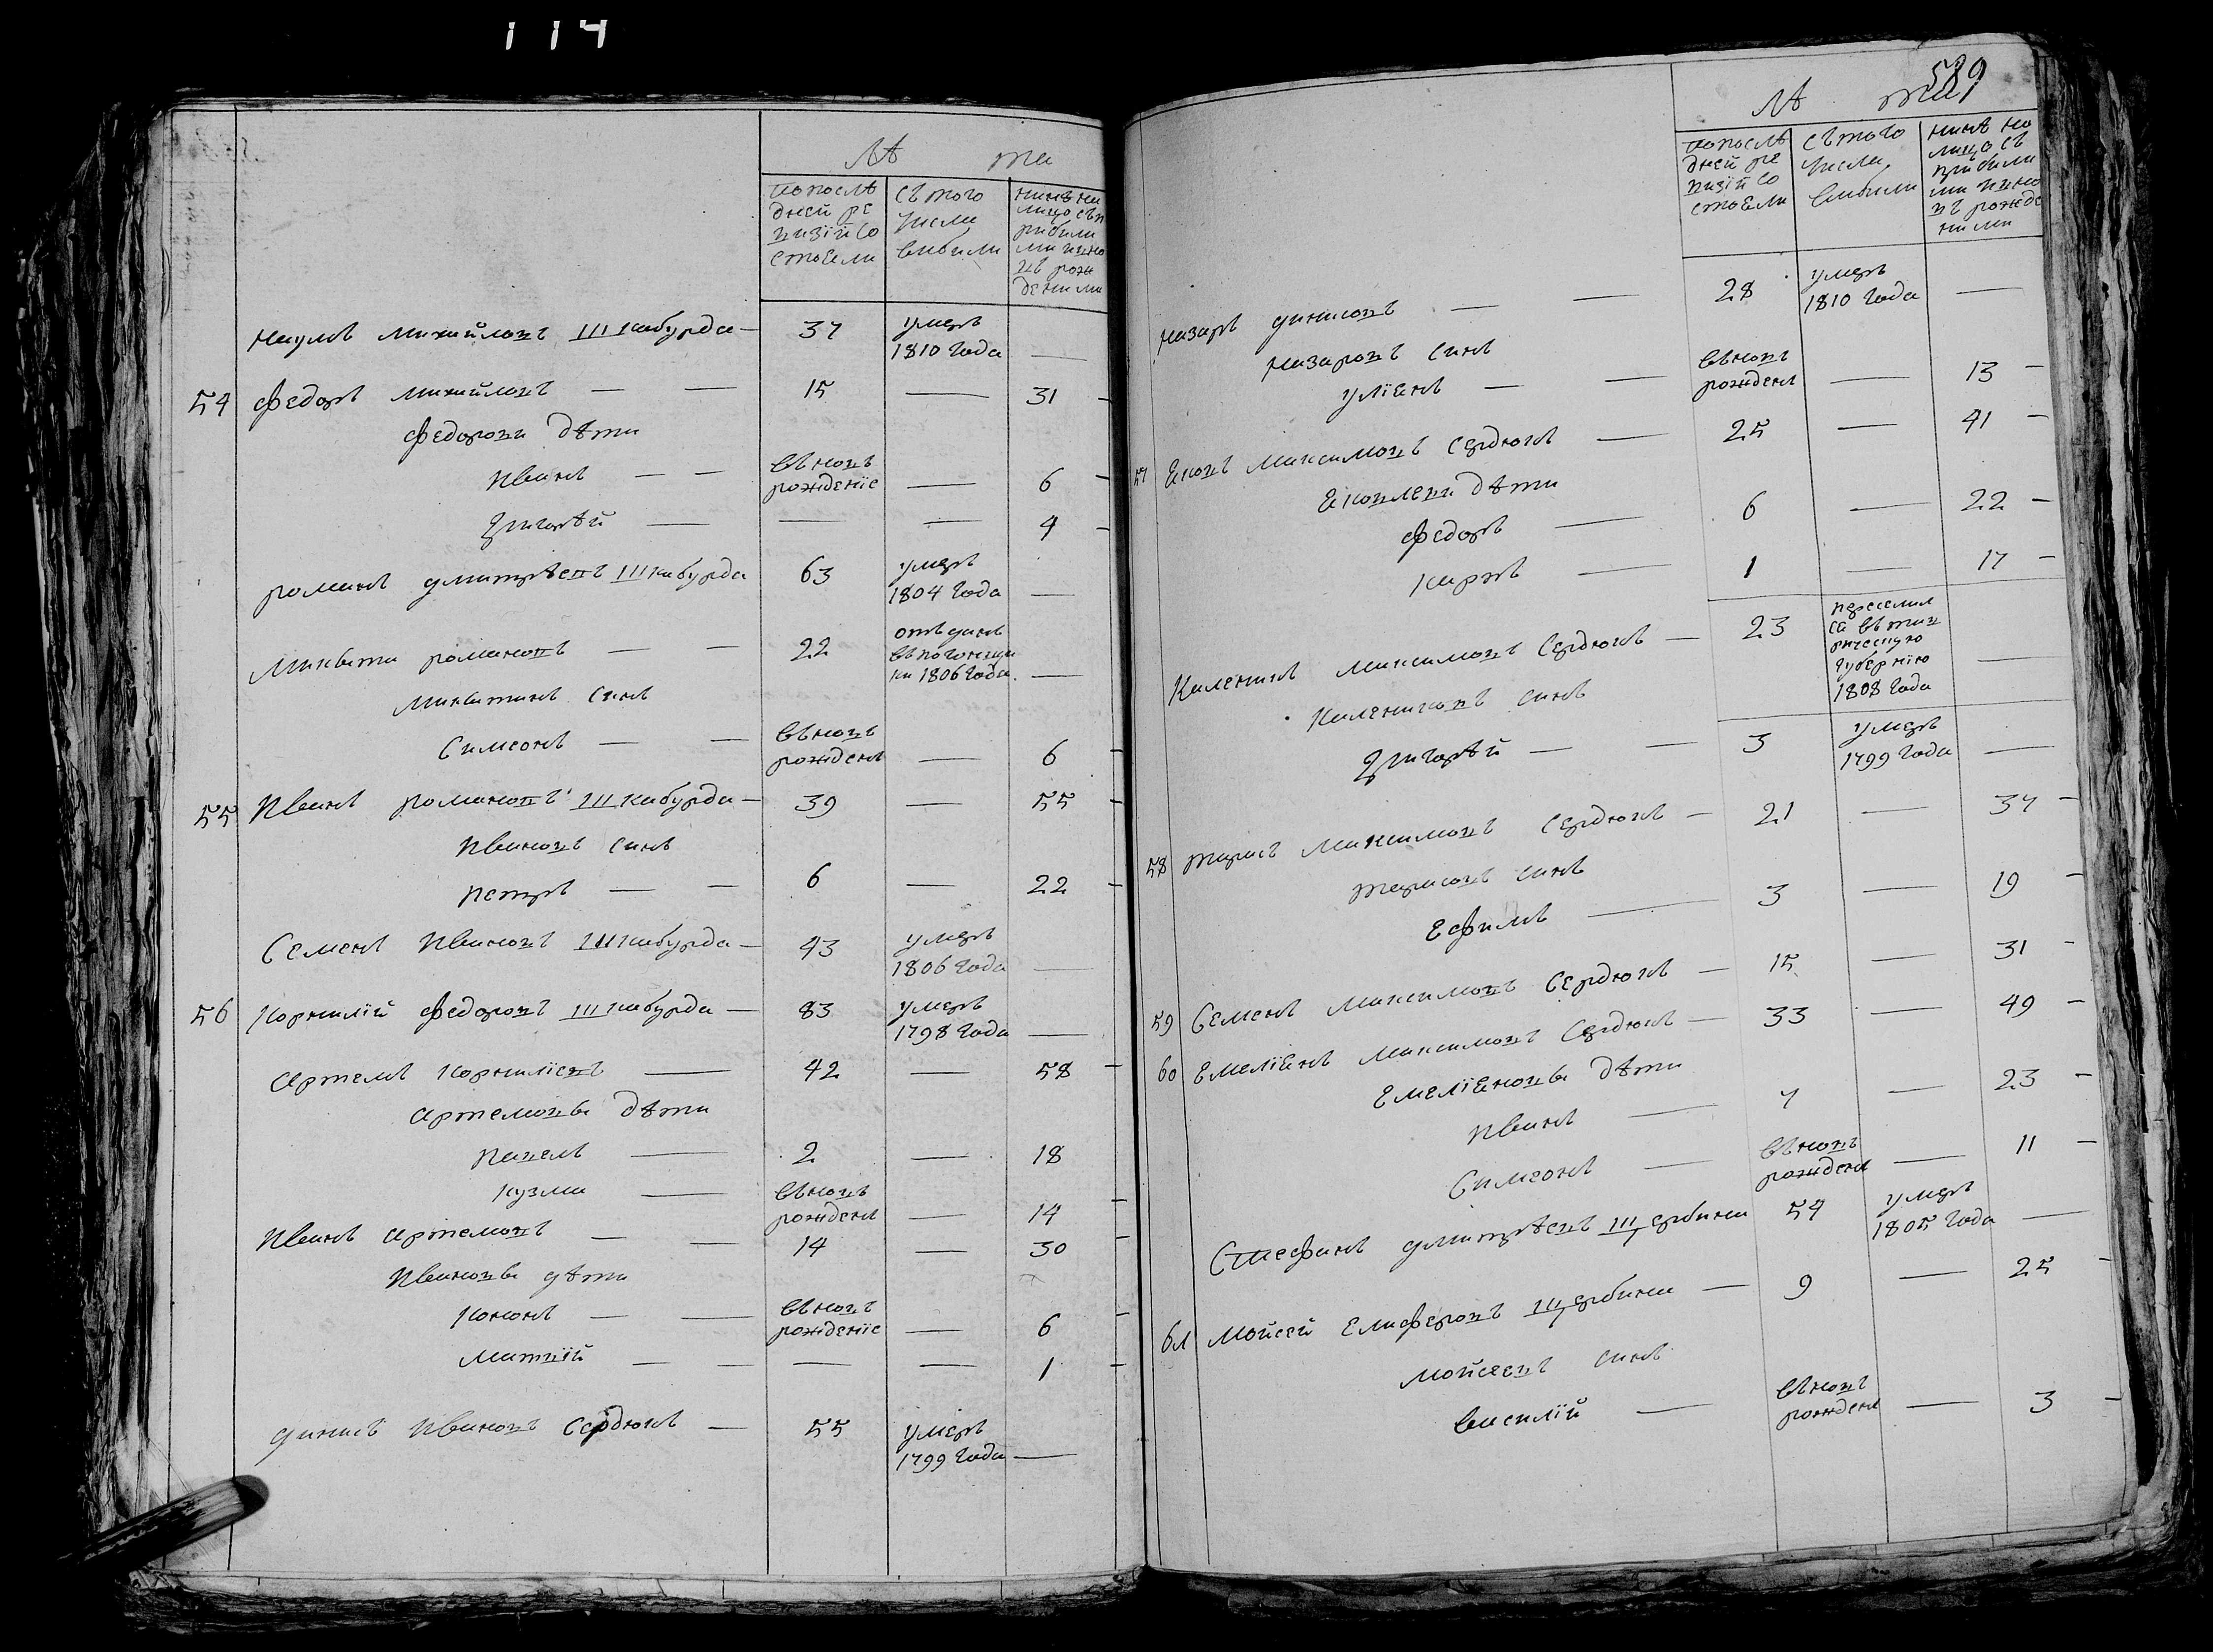 114
Лѣ та
попослѣ
дней ре
визій со
стояли
съ того
числа
выбыли
нинѣ на
лицо съ п
рибыли
ми и но
въ рож
денными
Наумъ Михайловъ Шкабурда — 37 умеръ
1810 года —
54 Федоръ Михайловъ — — 15 — 31 —
Федорови дѣти
Иванъ — — вьновъ
рожденіе — 6 —
Григорѣй — — — 4 —
Романъ Дмитрѣевъ Шкабурда 63 умеръ
1804 года —
Микита Романовъ — — 22 отъ данъ
въ погонщи
ки 1806 года —
Микитинъ синъ
Симеонъ — — вьновъ
рожденъ — 6 —
55 Иванъ Романовъ Шкабурда — 39 — 55 —
Ивановъ синъ
Петръ — — 6 — 22 —
Семенъ Ивановъ Шкабурда — 43 умеръ
1806 года —
56 Корнилій Федоровъ Шкабурда — 83 умеръ
1798 года —
Артемъ Корниліевъ — 42 — 58 —
Артемовы дѣти
Павелъ — 2 — 18
Кузма — вьновъ
рожденъ — 14 —
Иванъ Артемовъ — — 14 — 30 —
Ивановы дѣти
Кононъ — — вьновъ
рожденіе — 6 —
Матвій — — — — 1 —
Динисъ Ивановъ Сердюкъ — 55 умеръ
1799 года —
589
Лѣ та
попослѣ
дней ре
визій со
стояли
съ того
числа
выбыли
нинѣ на
лицо съ
прибыли
ми и но
въ рожде
ними
Назаръ Динисовъ — — 28 умеръ
1810 года —
Назаровъ синъ
Уліянъ — — вьновъ
рожденъ — 13 —
57 Яковъ Максимовъ Сердюкъ — 25 — 41 —
Яковлеви дѣти
Федоръ — 6 — 22 —
Карпъ — 1 — 17 —
Каленикъ Максимовъ Сердюкъ — 23 переселил
ся въ тав
рическую
губернію
1808 года —
Калениковъ синъ
Григорѣй — — 3 умеръ
1799 года —
58 Тарасъ Максимовъ Сердюкъ — 21 — 37 —
Тарасовъ синъ
Ефимъ — 3 — 19 —
59 Семенъ Максимовъ Сердюкъ — 15 — 31 —
60 Емеліянъ Максимовъ Сердюкъ — 33 — 49 —
Емеліяновы дѣти
Иванъ — 7 — 23 —
Симеонъ — вьновъ
рожденъ — 11 —
Стефанъ Дмитрѣевъ Щербина 54 умеръ
1805 года —
61 Мойсей Елиферовъ Щербина — 9 — 25 —
Мойсеевъ синъ
Василій — вьновъ
рожденъ — 3 —